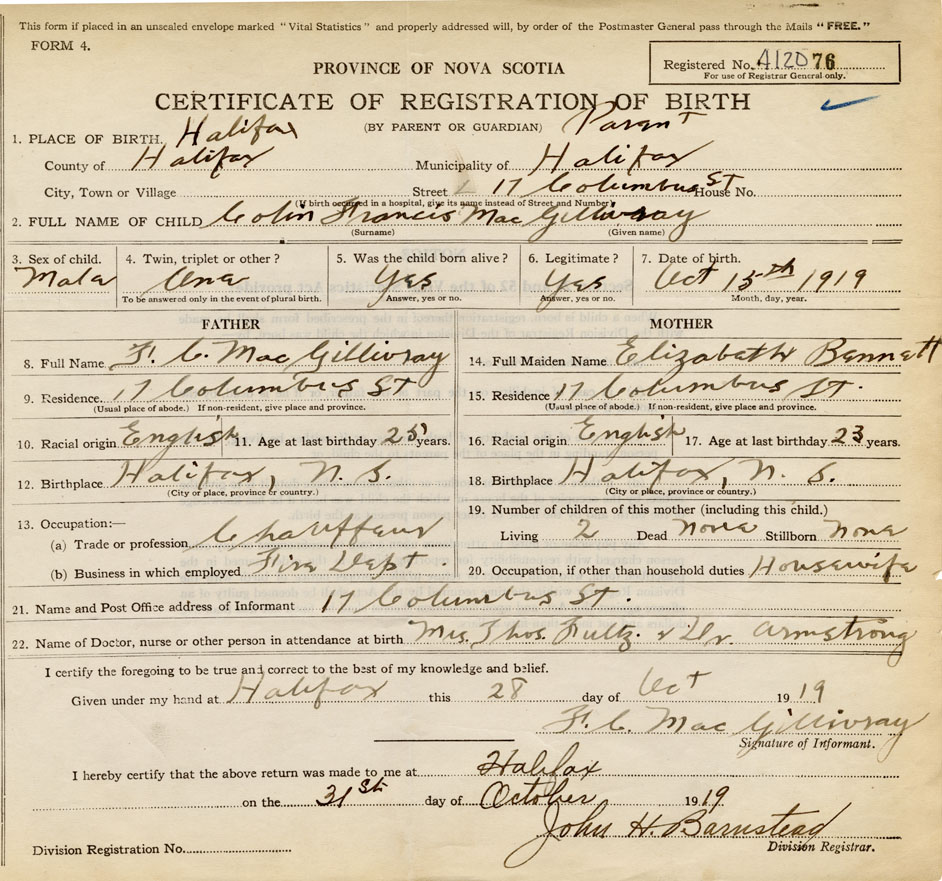 This form if placed in an unsealed envelope marked "Vital Statistics" and properly addressed will, by order of the Postmaster General pass through the Mails "FREE."
FORM 4.
Registered No. 412076
For use of Registrar General only.
PROVINCE OF NOVA SCOTIA
CERTIFICATE OF REGISTRATION OF BIRTH
(BY PARENT OR GUARDIAN) Parent
1. PLACE OF BIRTH. Halifax
County of Halifax Municipality of Halifax
City, Town or Village Street 17 Columbus St House No.
(If birth occurred in a hospital, give its name instead of Street and Number)
2. FULL NAME OF CHILD Colin Francis MacGillivray
(Surname) (Given name)
3. Sex of child. 4. Twin, triplet or other? 5. Was the child born alive? 6. Legitimate? 7. Date of birth.
Male One Yes Yes Oct 15th 1919
To be answered only in the event of plural birth. Answer, yes or no. Answer, yes or no. Month, day, year.
FATHER MOTHER
8. Full Name F. C. MacGillivray 14. Full Maiden Name Elizabeth Bennett
9. Residence. 17 Columbus St 15. Residence 17 Columbus St.
(Usual place of abode.) If non-resident, give place and province. (Usual place of abode.) If non-resident, give place and province.
10. Racial origin English 11. Age at last birthday 25 years. 16. Racial origin English 17. Age at last birthday 23 years.
12. Birthplace Halifax, N. S. 18. Birthplace Halifax, N. S.
(City or place, province or country.) (City or place, province or country.)
13. Occupation:— 19. Number of children of this mother (including this child.)
(a) Trade or profession Chauffeur Living 2 Dead None Stillborn None
(b) Business in which employed Fire Dept. 20. Occupation, if other than household duties Housewife
21. Name and Post Office address of Informant 17 Columbus St.
22. Name of Doctor, nurse or other person in attendance at birth Mrs. Thos. Fultz. & Dr. Armstrong
I certify the foregoing to be true and correct to the best of my knowledge and belief.
Given under my hand at Halifax this 28 day of Oct 1919
F. C. MacGillivray
Signature of Informant.
I hereby certify that the above return was made to me at Halifax
on the 31st day of October 1919.
John H. Barnstead
Division Registration No. Division Registrar.